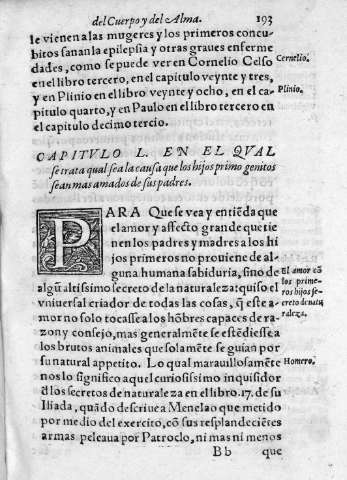 del Cuerpo y del Alma. 193
le vienen a las mugeres y los primeros concu-
bitos sanan la epilepsia y otras graues enferme
dades, como se puede ver en Cornelio Celso
Cornelio.
en el libro tercero, en el capitulo veynte y tres,
y en Plinio en el libro veynte y ocho, en el ca-
Plinio.
pitulo quarto, y en Paulo en el libro tercero en
el capitulo decimo tercio.
CAPITVLO L. EN EL QVAL
se trata qual sea la causa que los hijos primo genitos
sean mas amados de sus padres.
PARA Que se vea y entiēda que
el amor y affecto grande que tie
nen los padres y madres a los hi
jos primeros no proviene de al-
guna humana sabiduria, sino de
algū altissimo secreto de la naturaleza: quiso el
vniuersal criador de todas las cosas, q̃ este a-
mor no solo tocasse a los hōbres capaces de ra-
zon y consejo, mas generalmēte se estēdiesse a
El amor cō
los prime-
ros hijos se-
creto de natu
raleza.
los brutos animales que solamēte se guian por
su natural appetito. Lo qual marauillosamēte
Homero.
nos lo significo aquel curiosissimo inquisidor
d̃ los secretos de naturaleza en el libro. 17. de su
Iliada, quādo descriue a Menelao que metido
por medio del exercito, cō sus resplandeciētes
armas peleaua por Patroclo, ni mas ni menos
Bb que